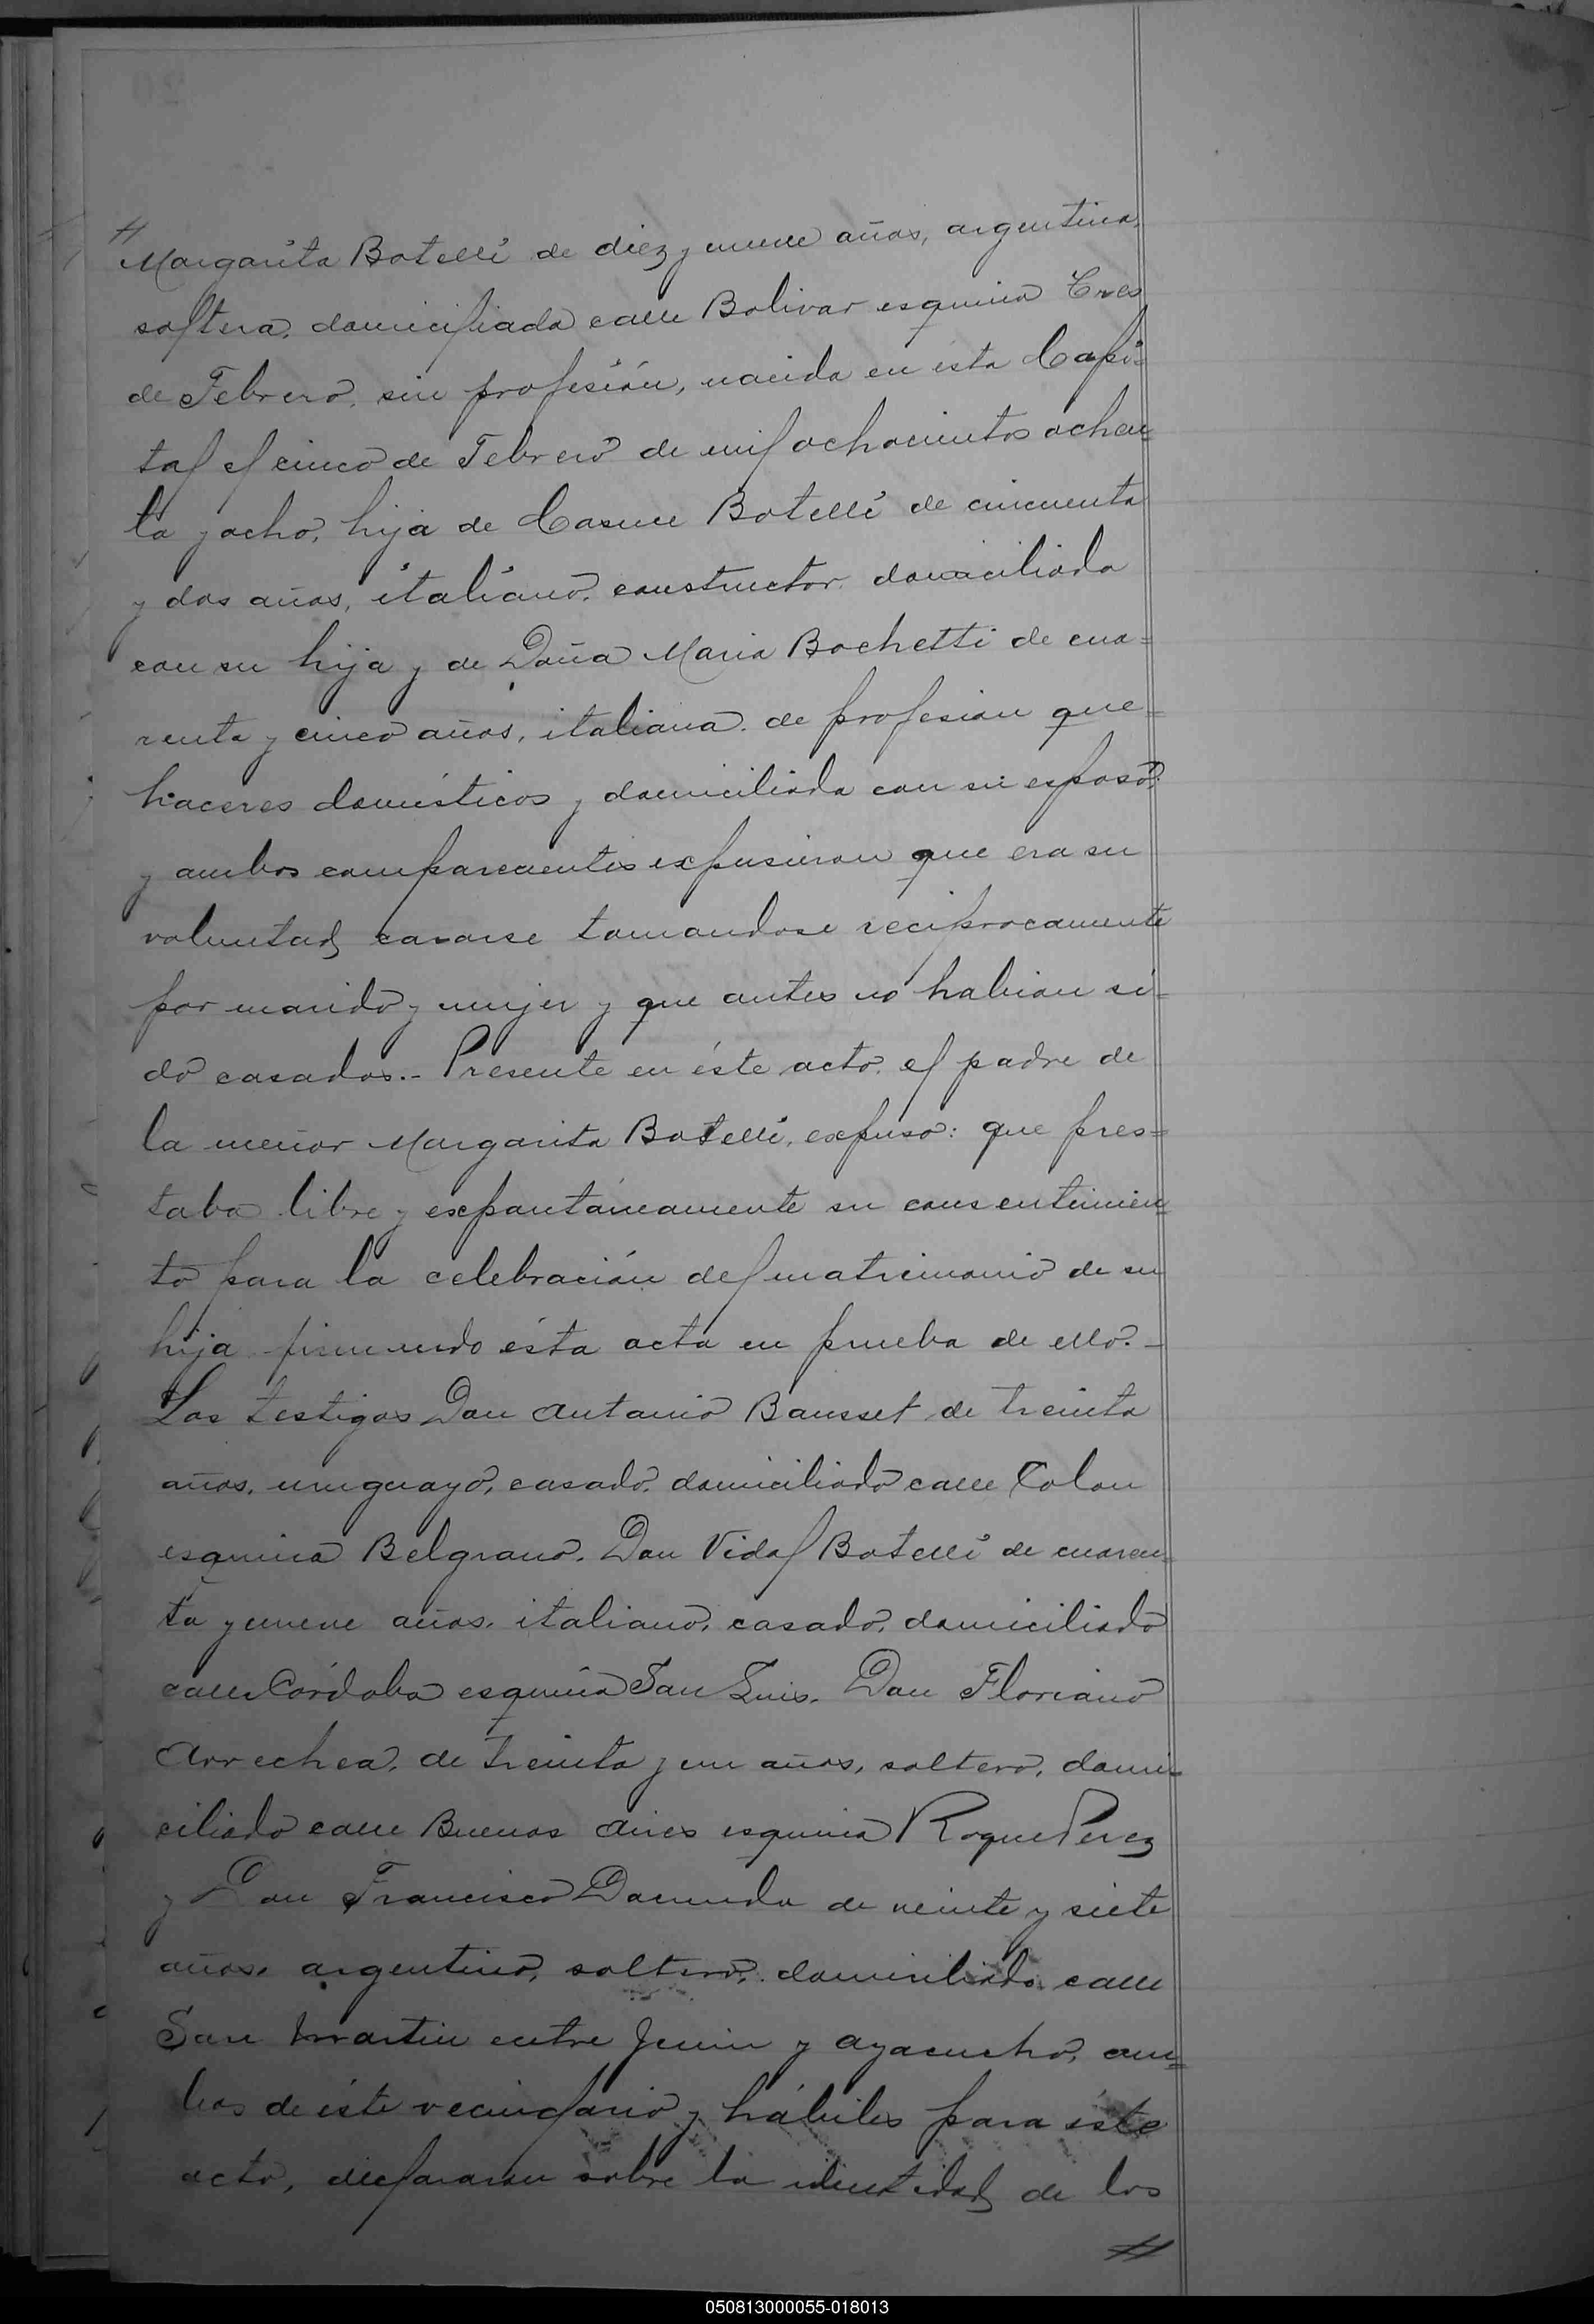 Margarita Botelli de diez y nueve años, argentina,
soltera, domiciliada calle Bolivar esquina Tres
de Febrero, sin profesión, nacida en ésta Capi=
tal el cinco de Febrero de mil ochocientos ochen=
ta y ocho, hija de Cosme Botelli de cincuenta
y dos años, italiano, constructor, domiciliado
con su hija y de Doña Maria Bochetti de cua=
renta y cinco años, italiana, de profesion que=
haceres domésticos y domiciliada con su esposo,
y ambos comparecientes expusieron que era su
voluntad casarse tomandose reciprocamente
por marido y mujer y que antes no habian si=
do casados.- Presente en éste acto, el padre de
la menor Margarita Botelli, expuso: que pres=
taba libre y expontáneamente su consentimien=
to para la celebración del matrimonio de su
hija firmando ésta acta en prueba de ello.-
Los testigos Don Antonio Bausset de treinta
años, uruguayo, casado, domiciliado calle Colon
esquina Belgrano, Don Vidal Botelli de cuaren=
ta y nueve años, italiano, casado, domiciliado
calle Córdoba esquina San Luis, Don Floriano
Arrechea, de treinta y un años, soltero, domi=
ciliado calle Buenos Aires esquina Roque Perez
y Don Francisco de veinte y siete
años, argentino, soltero, domiciliado calle
San Martin entre Junin y Ayacucho, am=
bos de éste vecindario y hábiles para éste
acto, declararon sobre la identidad de los
050813000055-018013